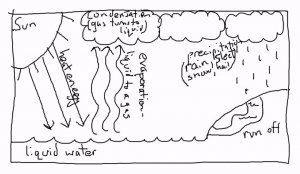 Sun
condensation
(gas turns to
liquid)
heat energy
evaporation-
liquid to a gas
precipitation
(rain, sleet,
snow, hail)
run off
liquid water